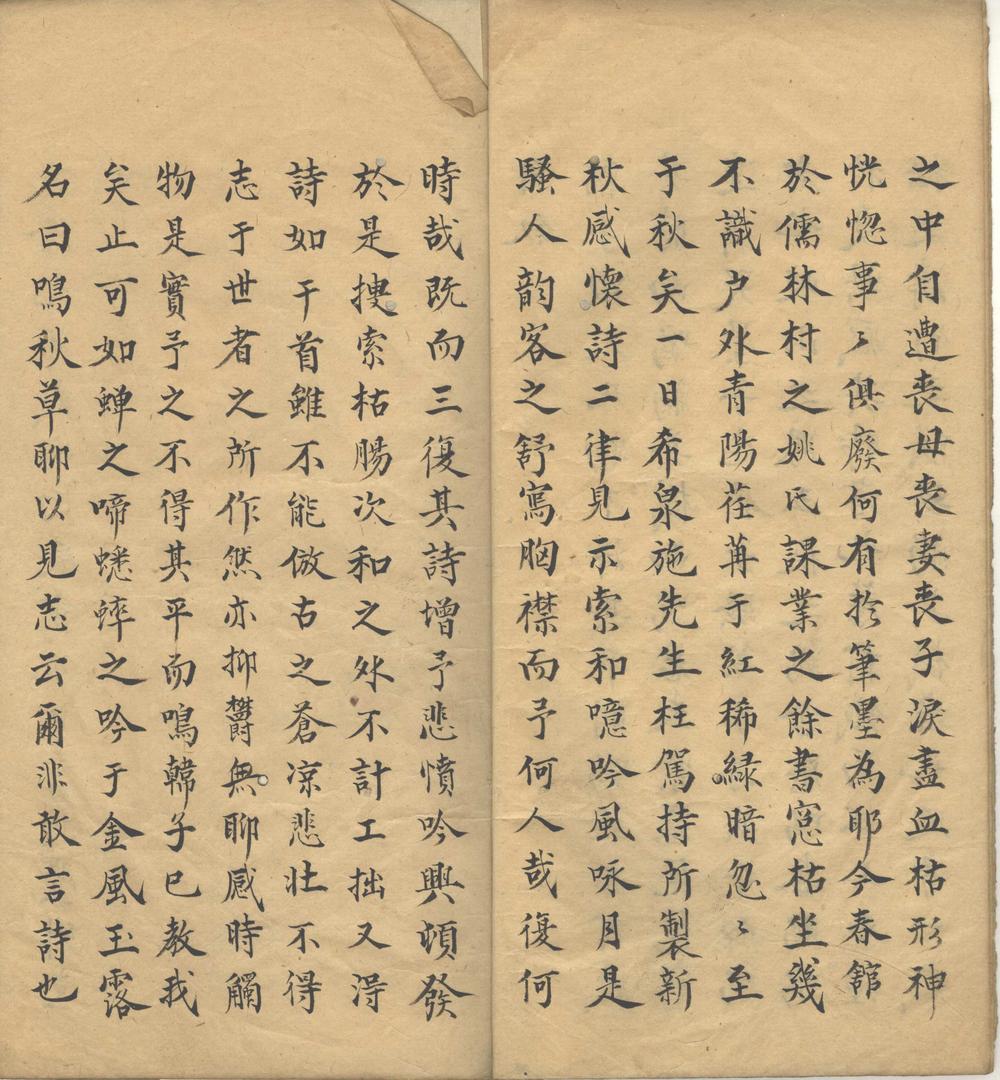 之中自遭喪母喪妻喪子淚盡血枯形神
恍惚事〻俱廢何有扵筆墨為耶今春舘
於儒林村之姚氏課業之餘書窓枯坐幾
不識户外青陽荏苒于紅稀緑暗忽〻至
于秋矣一日希泉施先生枉駕持所製新
秋感懷詩二律見示索和噫吟風咏月是
騷人韵客之舒寫胸襟而予何人哉復何
時哉既而三復其詩增予悲憤吟興頓發
於是搜索枯腸次和之外不計工拙又淂
詩如干首雖不能倣古之蒼凉悲壯不得
志于世者之所作然亦抑欝無聊感時觸
物是實予之不得其平而鳴韓子已教我
矣止可如蟬之啼蟋蟀之吟于金風玉露
名曰鳴秋草聊以見志云爾非敢言詩也